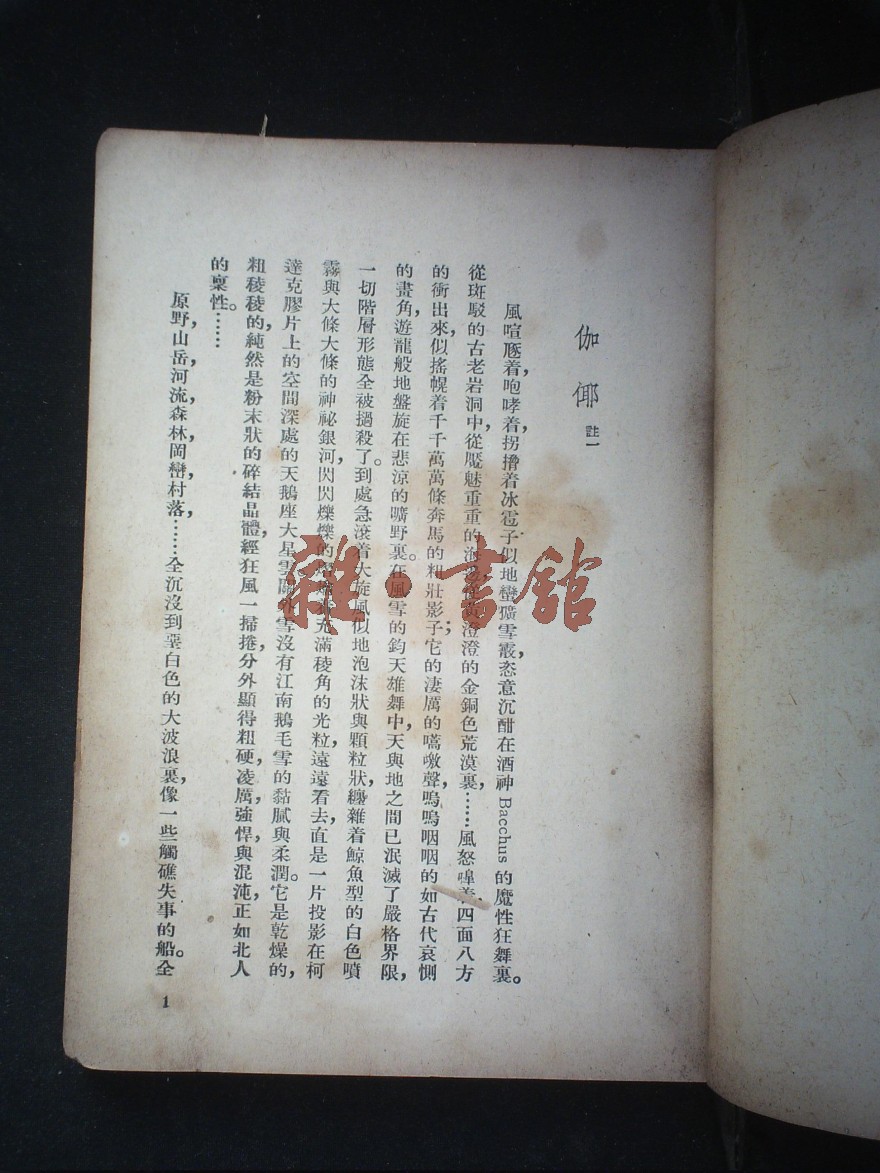 伽倻 註一
風喧豗着，咆哮着，拐擼着冰雹子似地蠻獷雪霰，恣意沉酣在酒神Bacchus的魔性狂舞裏。
從斑駁的古老岩洞中，從魘魅重重的海澄澄的金銅色荒漠裏，……風怒嘷着，四面八方
的衝出來，似搖幌着千千萬萬條奔馬的粗壯影子；它的淒厲的嚆噭聲，嗚嗚咽咽的如古代哀惻
的畫角，遊龍般地盤旋在悲涼的曠野裏。在風雪的鈞天雄舞中，天與地之間已泯滅了嚴格界限，
一切階層形態全被撾殺了。到處急滾着大旋風似地泡沫狀與顆粒狀，纏雜着鯨魚型的白色噴
霧與大條大條的神祕銀河，閃閃爍爍的充滿稜角的光粒，遠遠看去，直是一片投影在柯
達克膠片上的空間深處的天鵝座大星雲雪沒有江南鵝毛雪的黏膩與柔潤。它是乾燥的，
粗稜稜的，純然是粉末狀的碎結晶體，經狂風一掃捲，分外顯得粗硬，凌厲，強悍，與混沌，正如北人
的稟性。……
原野，山岳，河流，森林，岡巒，村落，……全沉沒到堊白色的大波浪裏，像一些觸礁失事的船。全
1
雜·書館